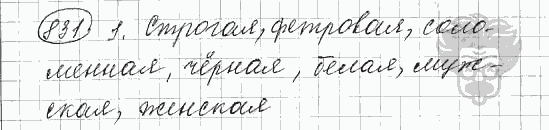 831 1. Строгая, фетровая, соло-
менная, чёрная, белая, муж-
ская, женская